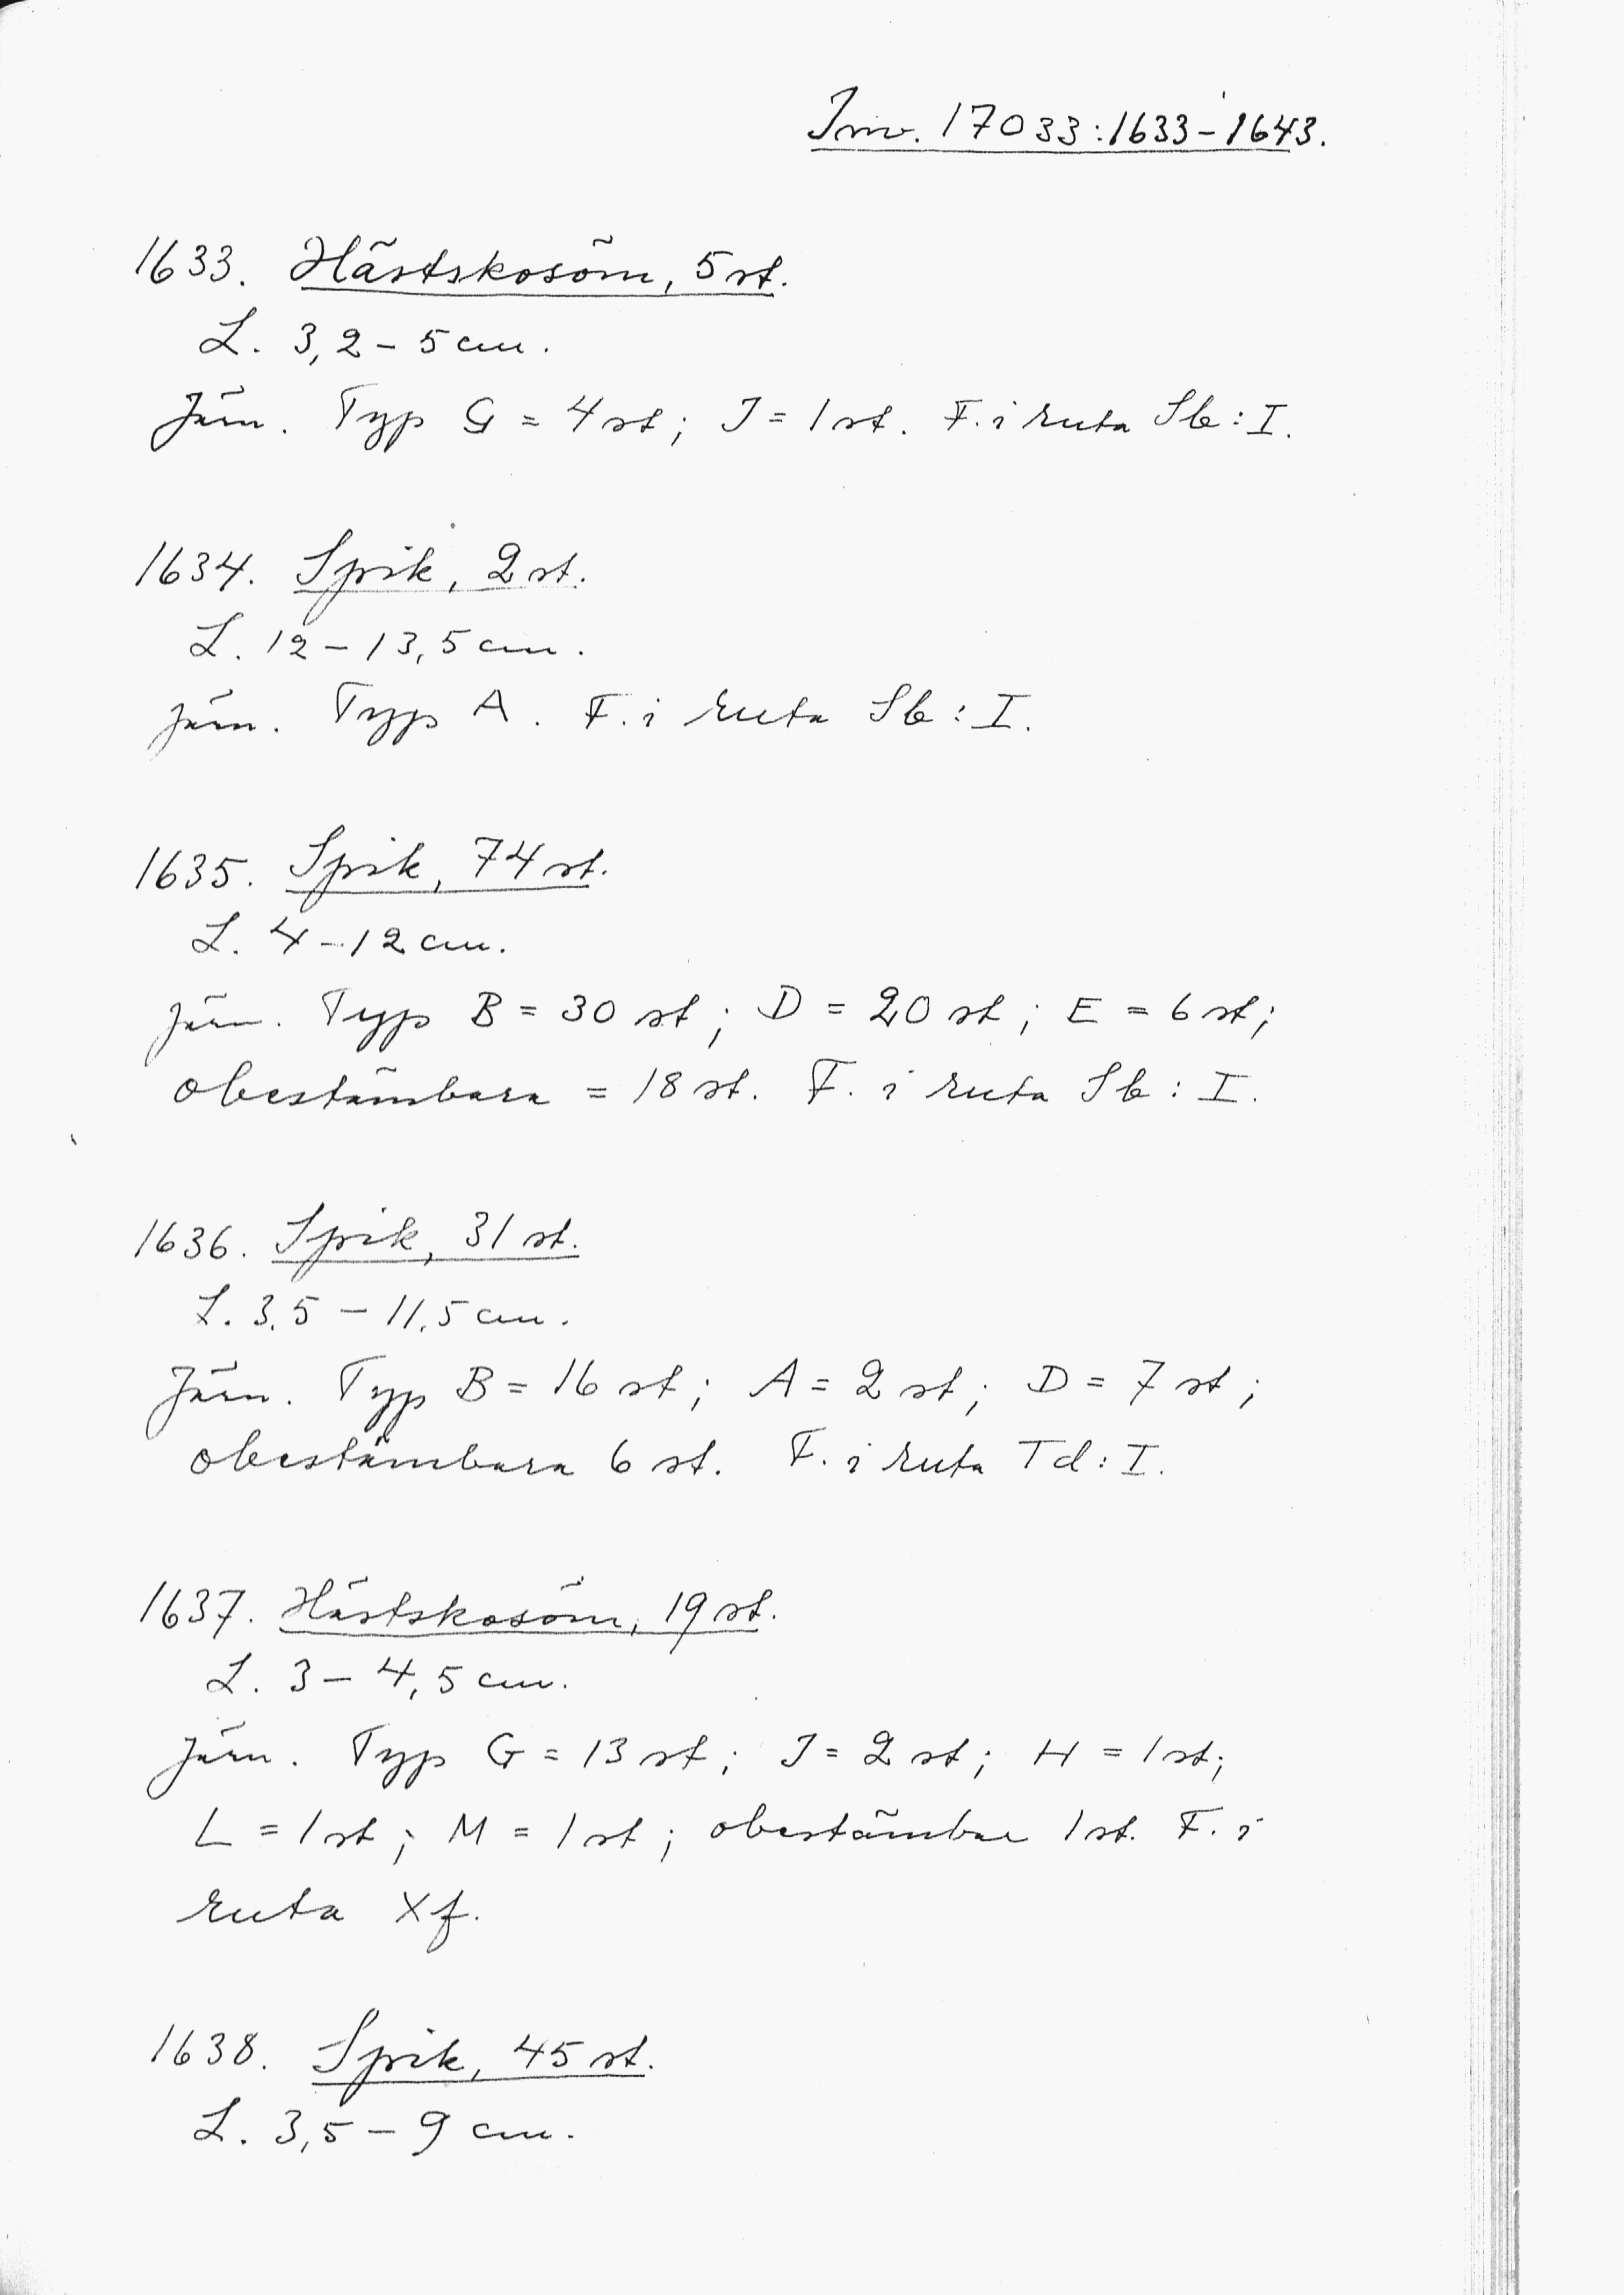 Inv. 17033:1633-1643.
1633. Hästskosöm, 5 st.
L. 3,2 - 5 cm.
Järn. Typ G = 4 st; J = 1 st. F. i ruta Sb: I.
1634. Spik, 2 st.
L. 12 - 13,5 cm.
Järn. Typ A. F. i ruta Sb: I.
1635. Spik, 74 st.
L. 4 - 12 cm.
Järn. Typ B = 30 st; D = 20 st; E = 6 st;
obestämbara = 18 st. F. i ruta Sb: I.
1636. Spik, 31 st.
L. 3,5 - 11,5 cm.
Järn. Typ B = 16 st; A = 2 st; D = 7 st;
obestämbara 6 st. F. i ruta Td: I.
1637. Hästskosöm, 19 st.
L. 3 - 4,5 cm.
Järn. Typ G = 13 st; J = 2 st; H = 1 st;
L = 1 st; M = 1 st; obestämbar 1 st. F. i
ruta Xf.
1638. Spik, 45 st.
L. 3,5 - 9 cm.